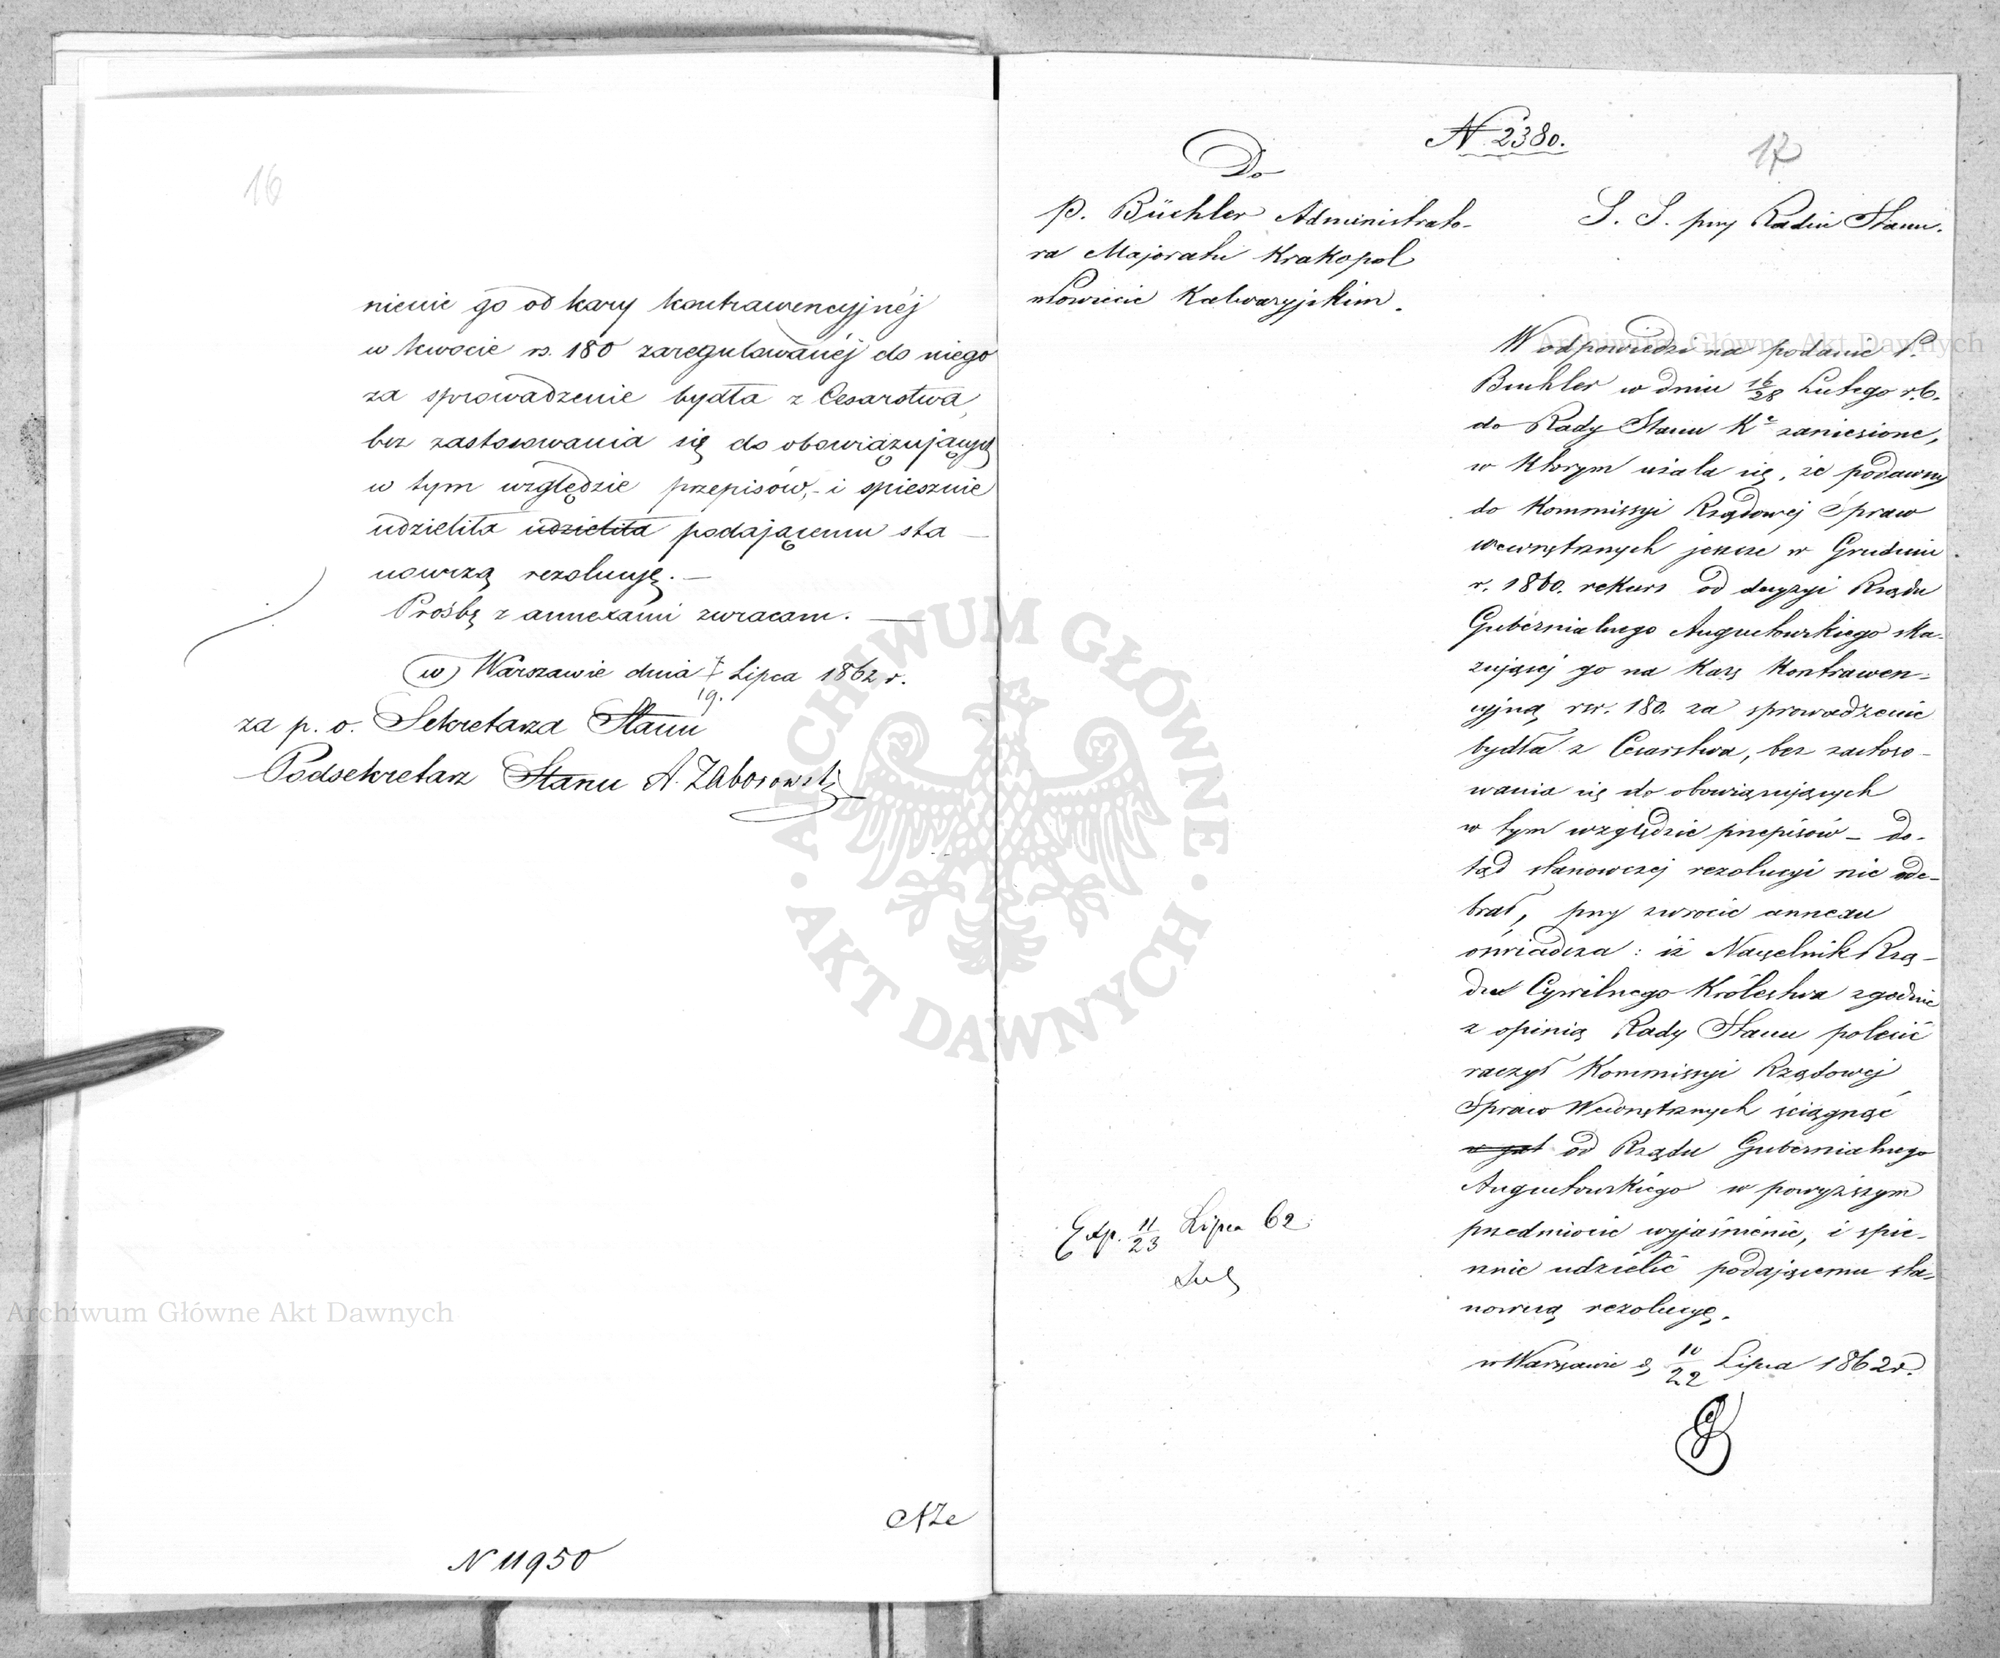 16
nienie go od kary kontrawencyjnéj
w kwocie rs. 180 zaregulowanéj do niego
za sprowadzenie bydła z Cesarstwa,
bez zastosowania się do obowiązujących
w tym względzie przepisów, - i spiesznie
udzieliła udzieliła podającemu sta
nowczą rezolucyę. —
Prośbę z annexami zwracam. —
w Warszawie dnia 7/19. Lipca 1862 r.
za p. o. Sekretarza Stanu
Podsekretarz Stanu A. Zaborowski
N 11950
N 2380.
17
Do
P. Büchler Administrato-
ra Majoratu Krakopol
w Powiecie Kalwaryjskim.
S. S. przy Radzie Stanu.
W odpowiedzi na podanie P.
Buchler w dniu 16/28 Lutego r. b.
do Rady Stanu K° zaniesione,
w którym użala się, że podawszy
do Kommissyi Rządowej Spraw
Wewnętrznych jeszcze w Grudniu
r. 1860. rekurs od decyzyi Rządu
Gubernialnego Augustowskiego ska-
zującej go na karę kontrawen-
cyjną rsr. 180. za sprowadzenie
bydła z Cesarstwa, bez zastoso-
wania się do obowiązujących
w tym względzie przepisów – do-
tąd stanowczej rezolucyi nie ode-
brał, przy zwrocie annexu
oświadcza: iż Naczelnik Rzą-
du Cywilnego Królestwa zgodnie
z opinią Rady Stanu polecić
raczył Kommissyi Rządowej
Spraw Wewnętrznych ściągnąć
od Rządu Gubernialnego
Augustowskiego w powyższym
przedmiocie wyjaśnienie, i spie-
sznie udzielić podającemu sta-
nowczą rezolucyę.
w Warszawie d. 10/22 Lipca 1862 r.
Exp. 11/23 Lipca 62
Archiwum Główne Akt Dawnych
Archiwum Główne Akt Dawnych
ARCHIWUM GŁÓWNE
AKT DAWNYCH